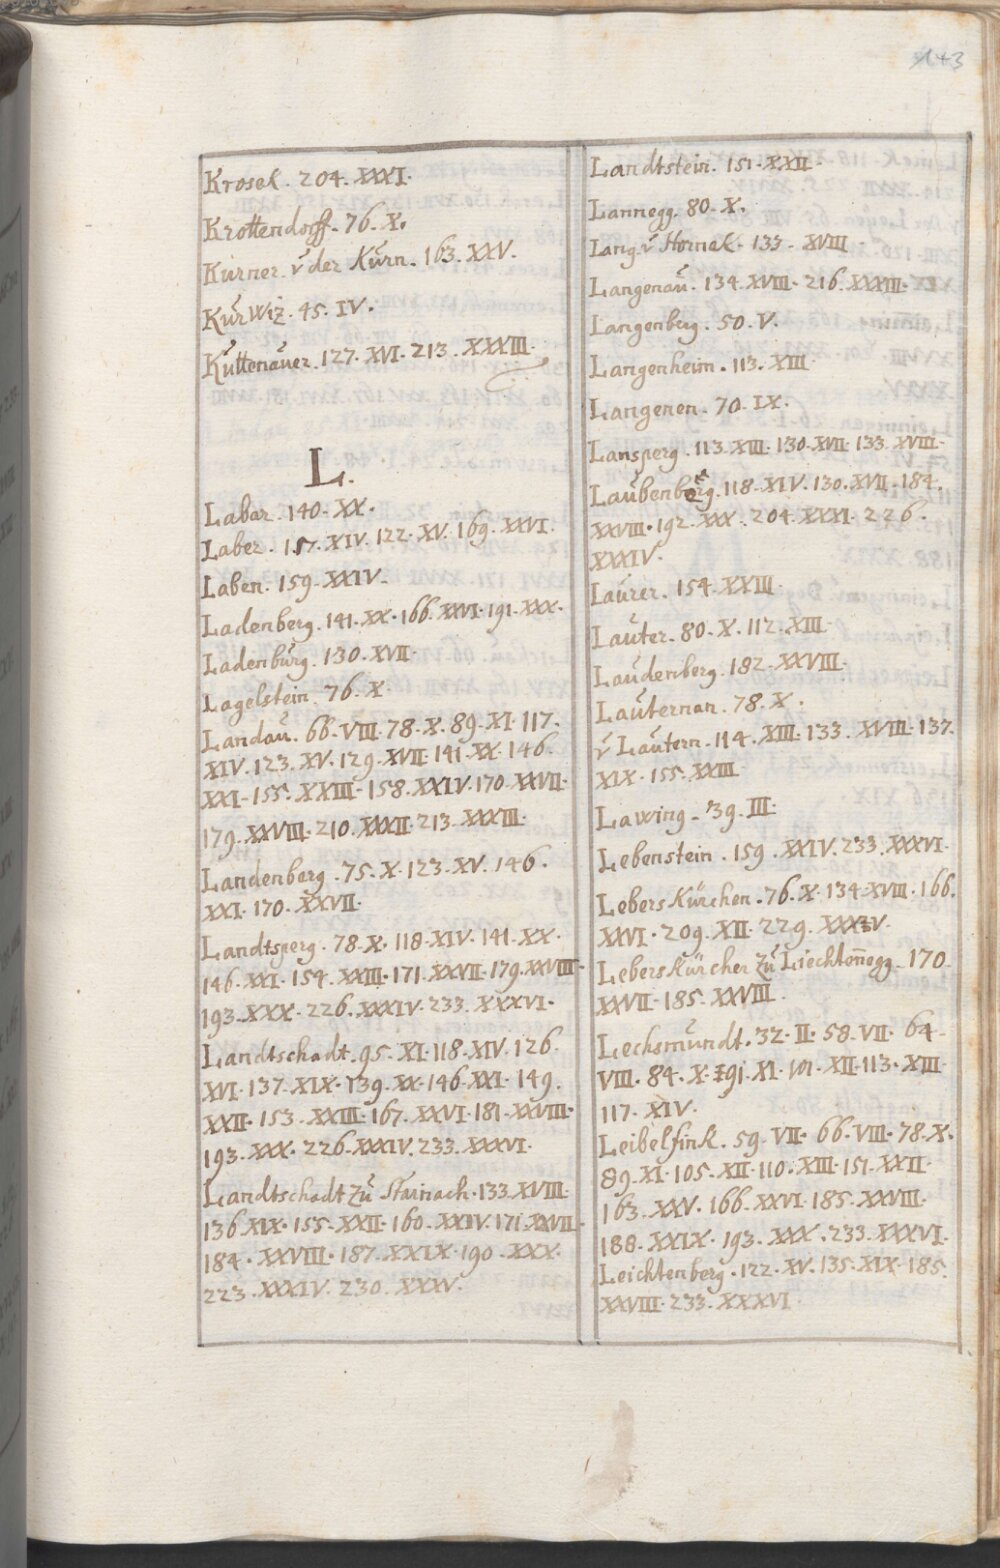 143
Krosek. 204. XXXI.
Krottendorff. 76. X.
Kürner. v̆ der Kürn. 163. XXV.
KürWiz. 45. IV.
Küttenauer. 127. XVI. 213. XXXIII.
L.
Labar. 140. XX.
Laber. 117. XIV. 122. XV. 169. XXVI.
Laben. 159. XXIV.
Ladenberg. 141. XX. 166. XXVI. 191. XXX.
Ladenburg. 130. XVII.
Lagelstein. 76. X.
Landau. 66. VIII. 78. X. 89. XI. 117.
XIV. 123. XV. 129. XVII. 141. XX. 146.
XXI. 155. XXIII. 158. XXIV. 170. XXVII.
179. XXVIII. 210. XXXII. 213. XXXIII.
Landenberg. 75. X. 123. XV. 146.
XXI. 170. XXVII.
Landtsperg. 78. X. 118. XIV. 141. XX.
146. XXI. 154. XXIII. 171. XXVII. 179. XXVIII.
193. XXX. 226. XXXIV. 233. XXXVI.
Landtschadt. 95. XI. 118. XIV. 126.
XVI. 137. XIX. 139. XX. 146. XXI. 149.
XXII. 153. XXIII. 167. XXVI. 181. XXVIII.
193. XXX. 226. XXXIV. 233. XXXVI.
Landtschadt zu Stainach. 133. XVIII.
136. XIX. 155. XXII. 160. XXIV. 171. XXVII.
184. XXVIII. 187. XXIX. 190. XXX.
223. XXXIV. 230. XXXV.
Landtstein. 151. XXII
Lannegg. 80. X.
Lang v̆ Hornak. 133. XVIII
Langenau. 134. XVIII. 216. XXXIII.
Langenberg. 50. V.
Langenheim. 113. XIII
Langenen. 70. IX.
Lansperg. 113. XIII. 130. XVII. 133. XVIII.
Laubenberg. 118. XIV. 130. XVII. 184.
XXVIII. 192. XXX. 204. XXXI. 226.
XXXIV.
Laurer. 154. XXIII.
Lauter. 80. X. 112. XIII.
Laudenberg. 182. XXVIII.
Lauternan. 78. X.
v̆ Lautern. 114. XIII. 133. XVIII. 137.
XIX. 155. XXIII.
Lawing. 39. III.
Lebenstein. 159. XXIV. 233. XXXVI.
LebersKürchen. 76. X. 134. XVIII. 166.
XXVI. 209. XII. 229. XXXV.
LebersKürcher zu Liechten̄egg. 170.
XXVII. 185. XXVIII.
Lechsmundt. 32. II. 58. VII. 64.
VIII. 84. X. 91. XI. 101. XII. 113. XIII.
117. XIV.
Leibelfink. 59. VII. 66. VIII. 78. X.
89. XI. 105. XII. 110. XIII. 151. XXII.
163. XXV. 166. XXVI. 185. XXVIII.
188. XXIX. 193. XXX. 233. XXXVI.
Leichtenberg. 122. XV. 135. XIX. 185.
XXVIII. 233. XXXVI.